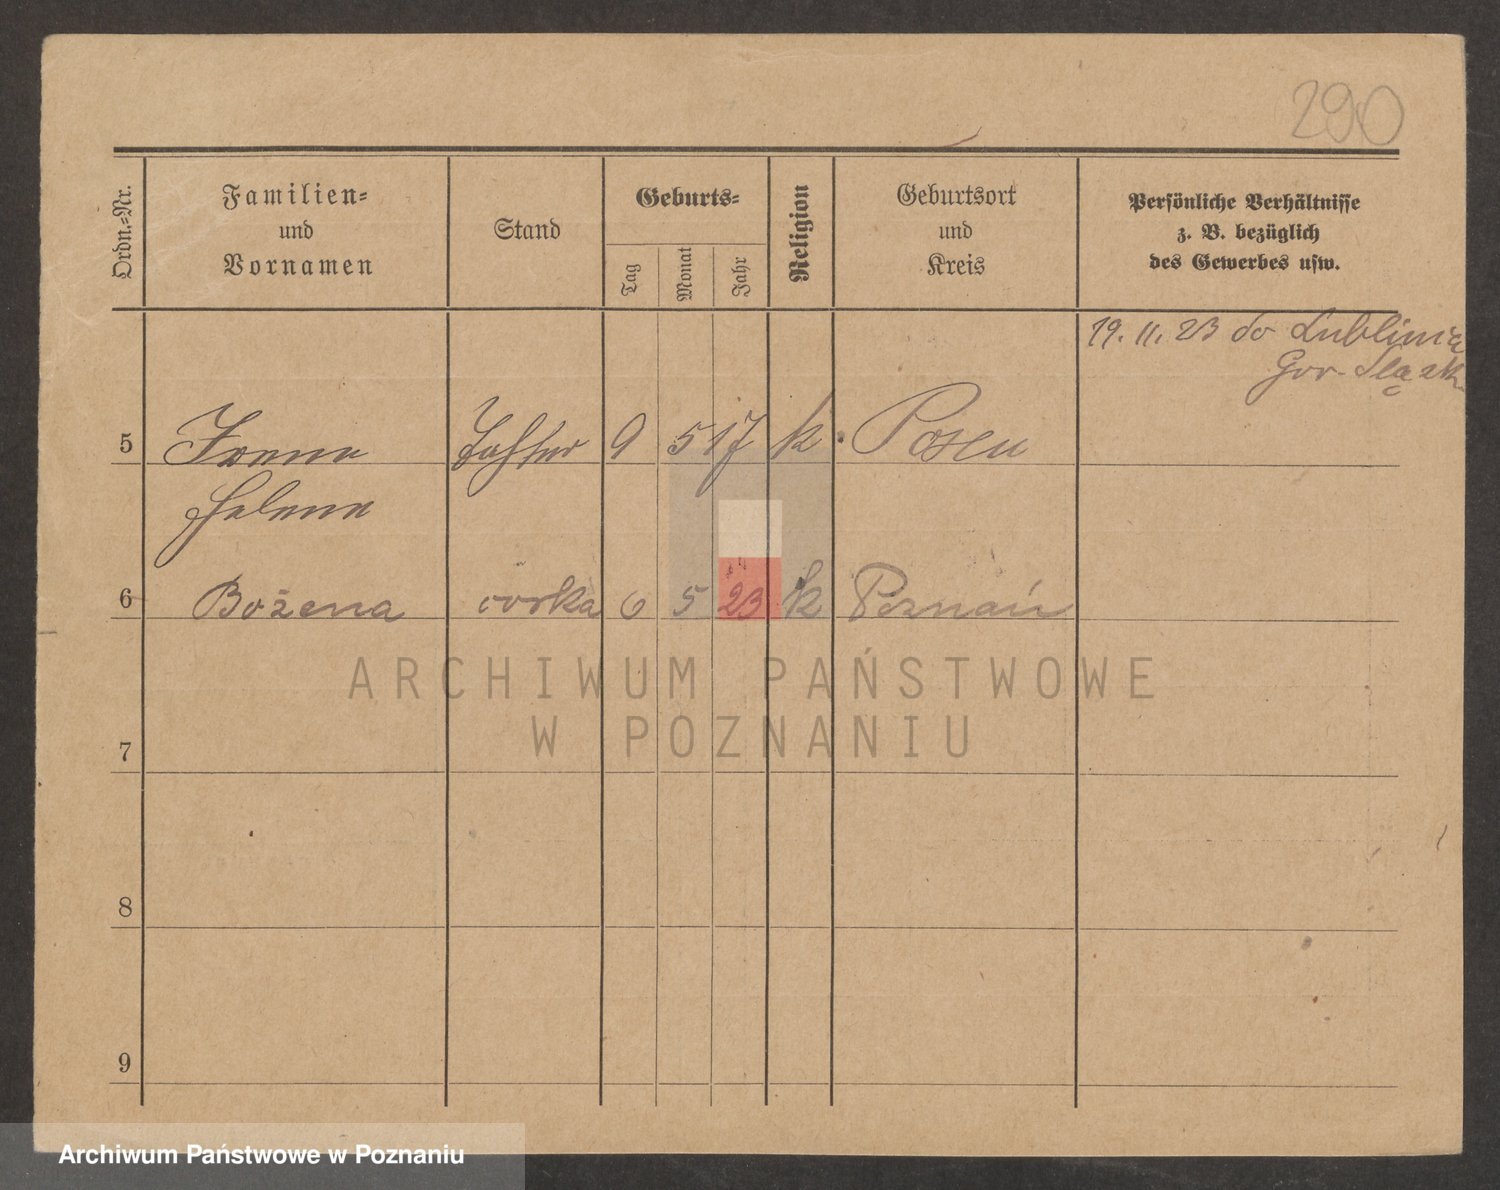 290
Ordn.-Nr.
Familien-
und
Vornamen
Stand
Geburts-
Tag
Monat
Jahr
Religion
Geburtsort
und
Kreis
Persönliche Verhältnisse
z. B. bezüglich
des Gewerbes usw.
19. 11. 23 do Lublinica
Gór-Śląsk
5 Irene Tochter 9 5 17 k. Posen
Helene
6 Bożena córka 6 5 23 k Poznań
ARCHIWUM PAŃSTWOWE
W POZNANIU
7
8
9
Archiwum Państwowe w Poznaniu